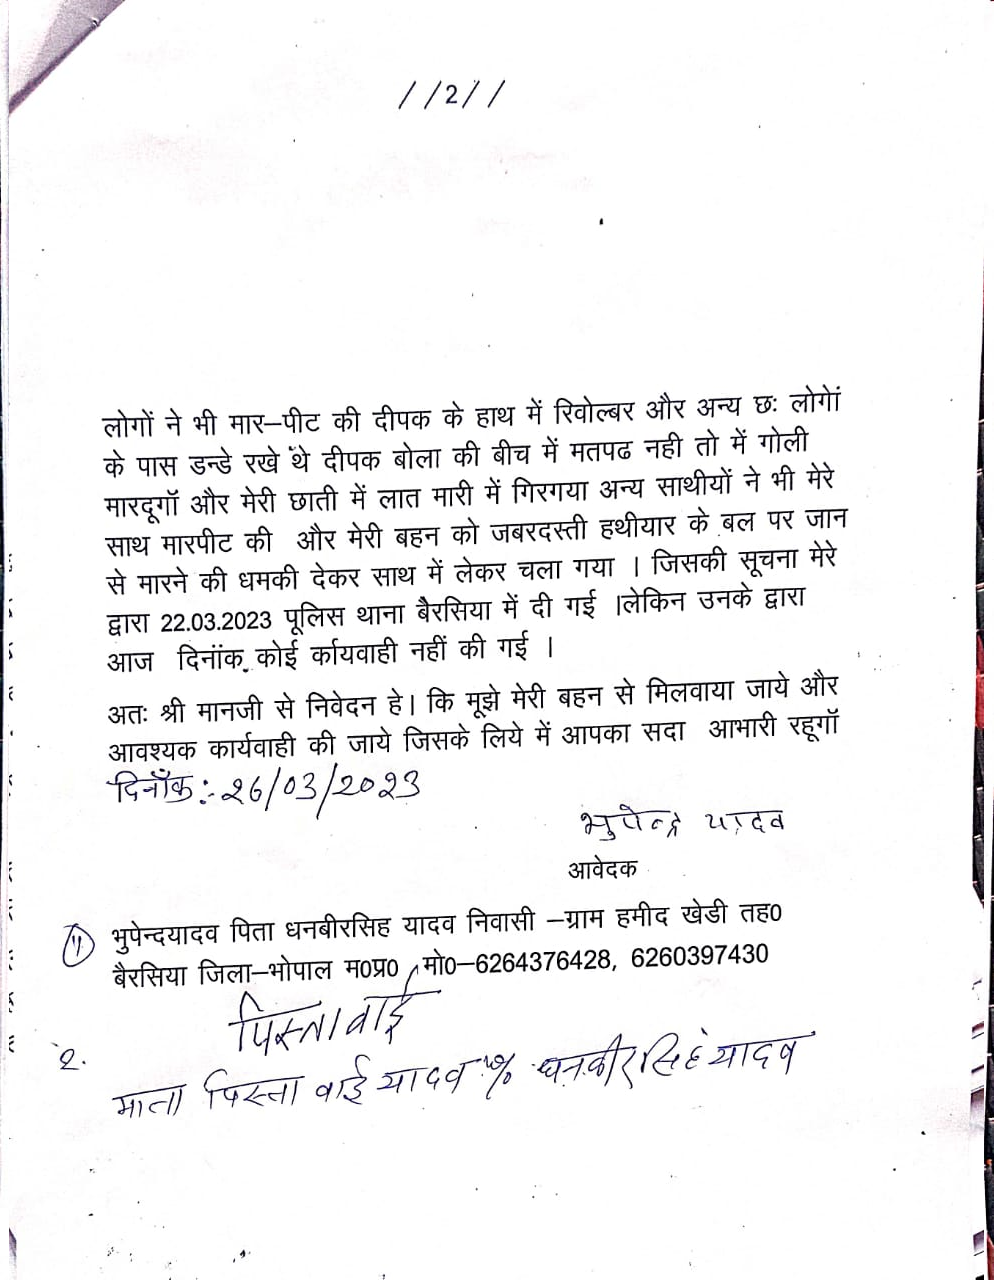 //2//
लोगों ने भी मार–पीट की दीपक के हाथ में रिवोल्बर और अन्य छः लोगेां
के पास डन्डे रखे थे दीपक बोला की बीच में मतपढ नही तो में गोली
मारदूगॉ और मेरी छाती में लात मारी में गिरगया अन्य साथीयों ने भी मेरे
साथ मारपीट की और मेरी बहन को जबरदस्ती हथीयार के बल पर जान
से मारने की धमकी देकर साथ में लेकर चला गया । जिसकी सूचना मेरे
द्वारा 22.03.2023 पूलिस थाना बैरसिया में दी गई ।लेकिन उनके द्वारा
आज दिनॉंक कोई र्कायवाही नहीं की गई ।
अतः श्री मानजी से निवेदन हे। कि मूझे मेरी बहन से मिलवाया जाये और
आवश्यक कार्यवाही की जाये जिसके लिये में आपका सदा आभारी रहूगॉ
दिनाँक:- 26/03/2023
भुपेन्द्र यादव
आवेदक
(1) भुपेन्दयादव पिता धनबीरसिह यादव निवासी –ग्राम हमीद खेडी तह0
बैरसिया जिला–भोपाल म0प्र0 मो0–6264376428, 6260397430
पिस्ताबाई
2.
माता पिस्ता बाई यादव % धनबीरसिहं यादव